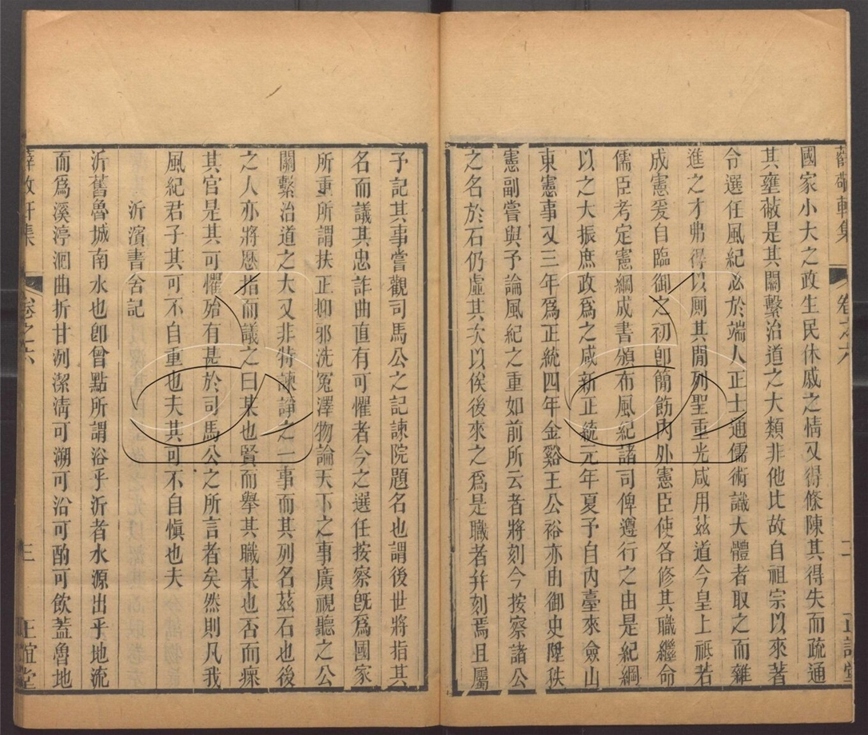 薛敬軒集 卷之六 二 正誼堂
國家小大之政生民休戚之情又得條陳其得失而疏通
其壅蔽是其關繫治道之大類非他比故自祖宗以來著
令選任風紀必於端人正士通儒術識大體者取之而雜
進之才弗得以厠其閒列聖重光咸用茲道今皇上祗若
成憲爰自臨御之初卽簡飭內外憲臣使各修其職繼命
儒臣考定憲綱成書頒布風紀諸司俾遵行之由是紀綱
以之大振庶政爲之咸新正統元年夏予自內臺來僉山
東憲事又三年爲正統四年金谿王公裕亦由御史陞秩
憲副嘗與予論風紀之重如前所云者將刻今按察諸公
之名於石仍虛其次以俟後來之爲是職者幷刻焉且屬
予記其事嘗觀司馬公之記諫院題名也謂後世將指其
名而議其忠詐曲直有可懼者今之選任按察旣爲國家
所重所謂扶正抑邪洗冤澤物論天下之事廣視聽之公
關繫治道之大又非特諫諍之一事而其列名茲石也後
之人亦將歷指而議之曰某也賢而舉其職某也否而瘝
其官是其可懼殆有甚於司馬公之所言者矣然則凡我
風紀君子其可不自重也夫其可不自愼也夫
沂濱書舍記
沂舊魯城南水也卽曾點所謂浴乎沂者水源出乎地流
而爲溪渟洄曲折甘洌潔淸可溯可沿可酌可飮蓋魯地
薛敬軒集 卷之六 三 正誼堂